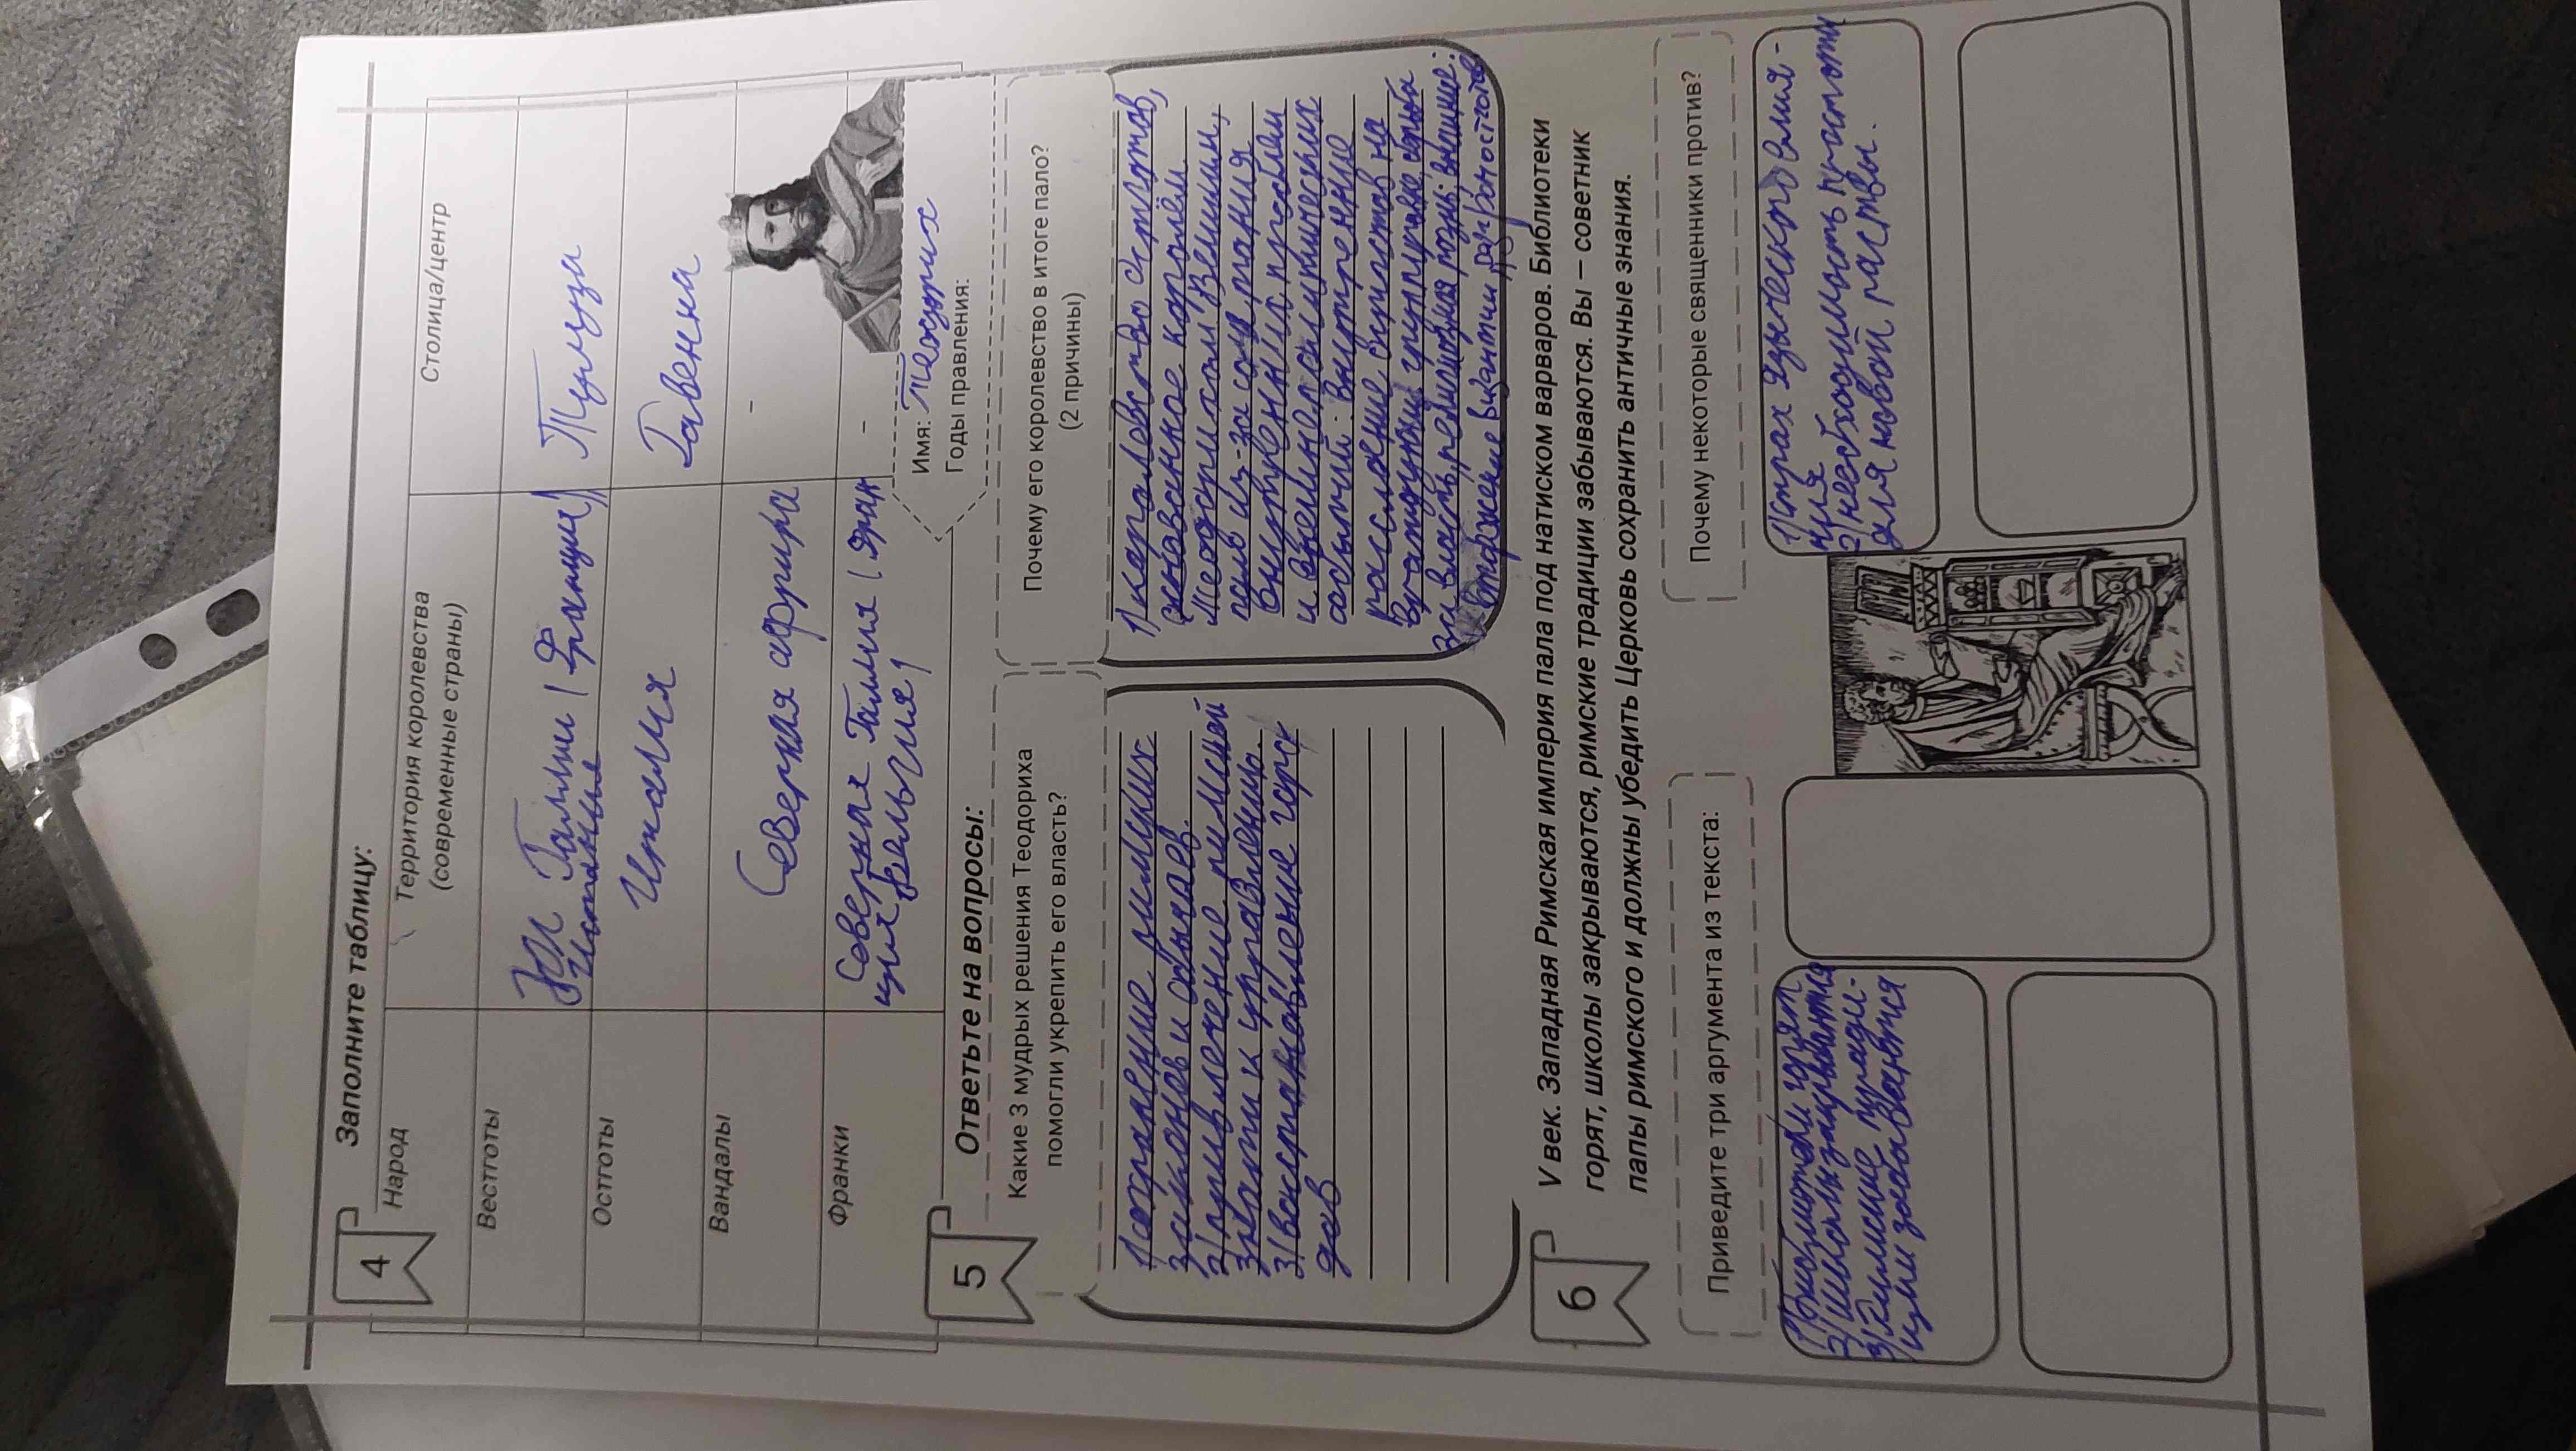 4 Заполните таблицу:
Народ Территория королевства Столица/центр
(современные страны)
Вестготы Юг Галлии (Франция) Тулуза
Испания
Остготы Италия Равенна
Вандалы Северная африка -
Франки Северная Галлия (Фран -
ция, Бельгия)
Имя: Теодорих
Годы правления:
5 Ответьте на вопросы:
Какие 3 мудрых решения Теодориха
помогли укрепить его власть?
1) сохранение римских
законов и обычаев.
2) привлечение римской
знати к управлению.
3) восстановление горо
дов
Почему его королевство в итоге пало?
(2 причины)
1) королевство остготов,
основанное королём
Теодорихом Великим,
пало из-за сочетания
внутренних проблем
и внешнеполитических
событий: внутренние
расслоение остготов на
враждующие группировки, борьба
за власть, религиозная рознь; внешние:
вторжение Византии, разгром остготов
6 V век. Западная Римская империя пала под натиском варваров. Библиотеки
горят, школы закрываются, римские традиции забываются. Вы – советник
папы римского и должны убедить Церковь сохранить античные знания.
Приведите три аргумента из текста:
1) Библиотеки горят
2) школы закрываются
3) Римские тради-
ции забываются
Почему некоторые священники против?
1) страх языческого влия-
ния
2) необходимость простоты
для новой паствы.